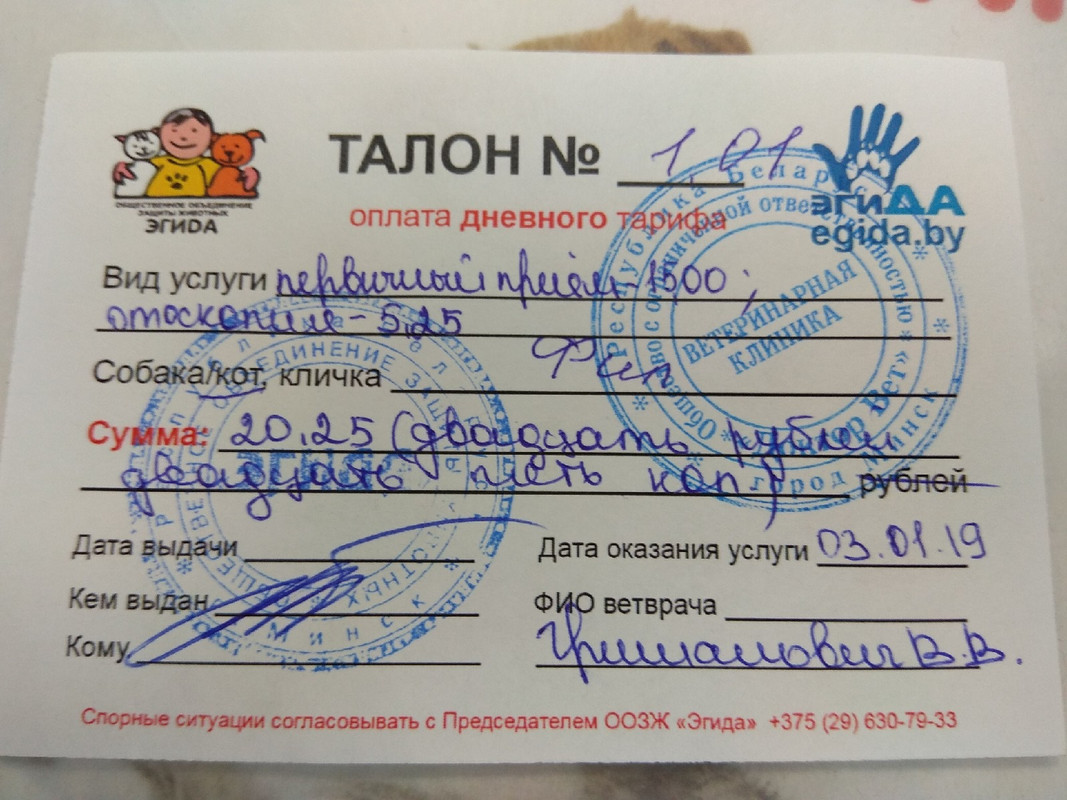 ОБЩЕСТВЕННОЕ ОБЪЕДИНЕНИЕ
ЗАЩИТЫ ЖИВОТНЫХ
ЭГИДА
ТАЛОН № 101
эгиДА
egida.by
оплата дневного тарифа
Вид услуги первичный приём - 1500;
отоскопия - 5,25
Собака/кот, кличка Фил
Сумма: 20,25 (двадцать рублей
двадцать пять коп) рублей
Дата выдачи
Дата оказания услуги 03.01.19
Кем выдан
ФИО ветврача
Кому
Гришанович В.В.
Спорные ситуации согласовывать с Председателем ООЗЖ «Эгида» +375 (29) 630-79-33
Республика Беларусь
ограниченной ответственностью
ВЕТЕРИНАРНАЯ
КЛИНИКА
город Минск
Минск